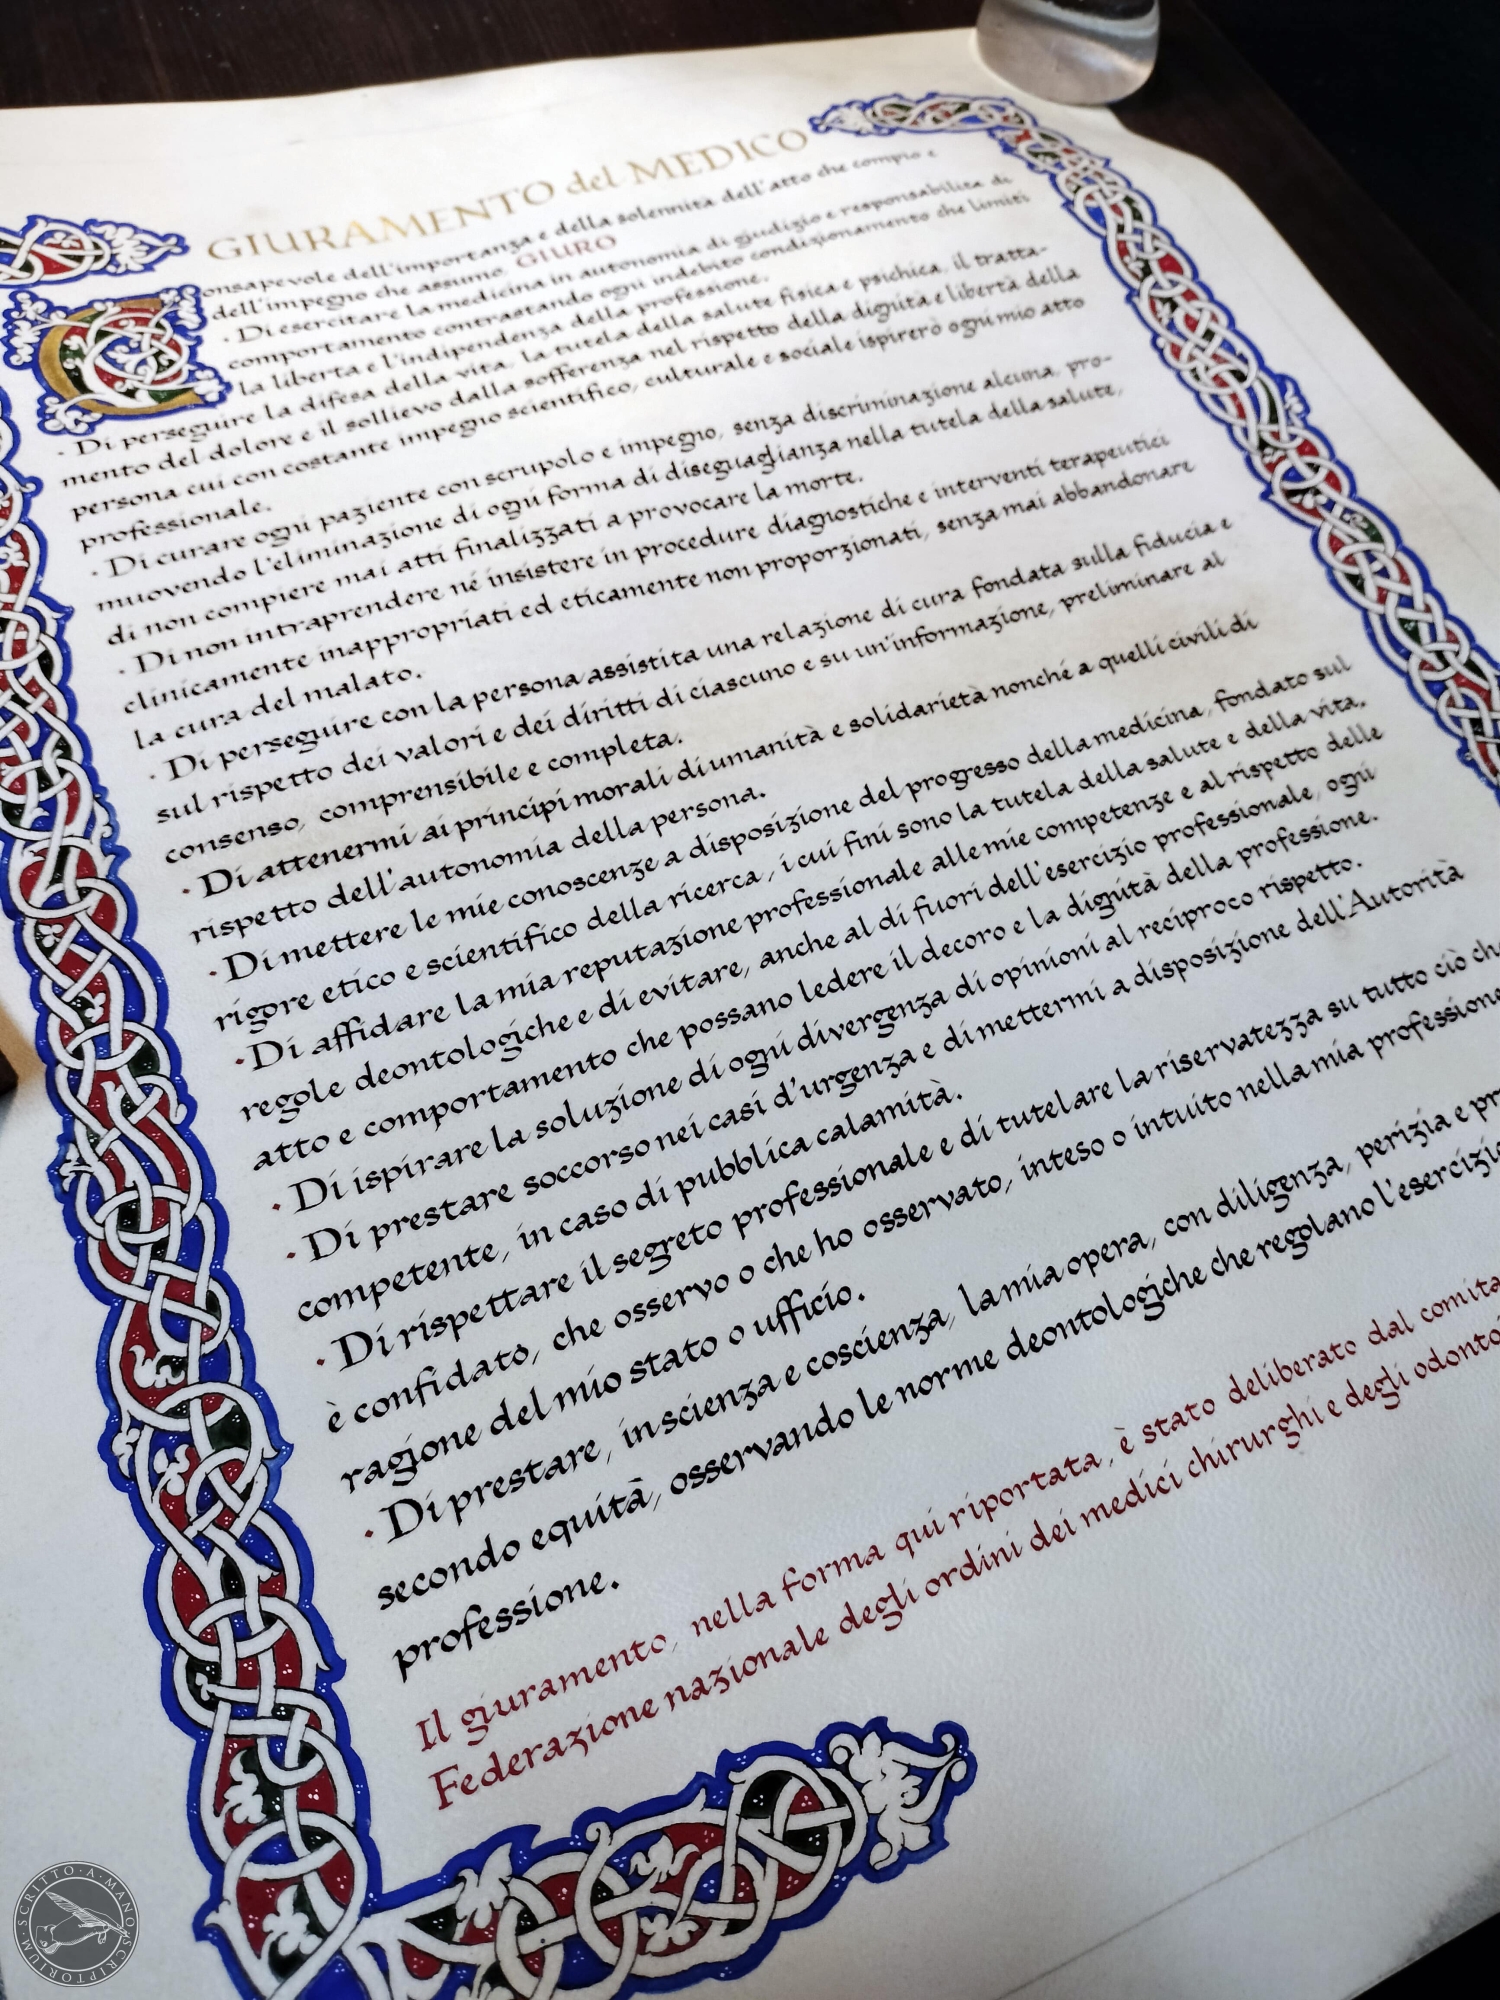 GIURAMENTO del MEDICO
Consapevole dell'importanza e della solennità dell'atto che compio e
dell'impegno che assumo, GIURO
· Di esercitare la medicina in autonomia di giudizio e responsabilità di
comportamento contrastando ogni indebito condizionamento che limiti
la libertà e l'indipendenza della professione.
· Di perseguire la difesa della vita, la tutela della salute fisica e psichica, il tratta-
mento del dolore e il sollievo dalla sofferenza nel rispetto della dignità e libertà della
persona cui con costante impegno scientifico, culturale e sociale ispirerò ogni mio atto
professionale.
· Di curare ogni paziente con scrupolo e impegno, senza discriminazione alcuna, pro-
muovendo l'eliminazione di ogni forma di diseguaglianza nella tutela della salute,
di non compiere mai atti finalizzati a provocare la morte.
· Di non intraprendere né insistere in procedure diagnostiche e interventi terapeutici
clinicamente inappropriati ed eticamente non proporzionati, senza mai abbandonare
la cura del malato.
· Di perseguire con la persona assistita una relazione di cura fondata sulla fiducia e
sul rispetto dei valori e dei diritti di ciascuno e su un'informazione, preliminare al
consenso, comprensibile e completa.
· Di attenermi ai principi morali di umanità e solidarietà nonché a quelli civili di
rispetto dell'autonomia della persona.
· Di mettere le mie conoscenze a disposizione del progresso della medicina, fondato sul
rigore etico e scientifico della ricerca, i cui fini sono la tutela della salute e della vita.
· Di affidare la mia reputazione professionale alle mie competenze e al rispetto delle
regole deontologiche e di evitare, anche al di fuori dell'esercizio professionale, ogni
atto e comportamento che possano ledere il decoro e la dignità della professione.
· Di ispirare la soluzione di ogni divergenza di opinioni al reciproco rispetto.
· Di prestare soccorso nei casi d'urgenza e di mettermi a disposizione dell'Autorità
competente, in caso di pubblica calamità.
· Di rispettare il segreto professionale e di tutelare la riservatezza su tutto ciò che
è confidato, che osservo o che ho osservato, inteso o intuito nella mia professione
ragione del mio stato o ufficio.
· Di prestare, in scienza e coscienza, la mia opera, con diligenza, perizia e pr
secondo equità, osservando le norme deontologiche che regolano l'esercizio
professione.
Il giuramento, nella forma qui riportata, è stato deliberato dal comita
Federazione nazionale degli ordini dei medici chirurghi e degli odonto
SCRITTO·A·MANO
SCRIPTORIUM